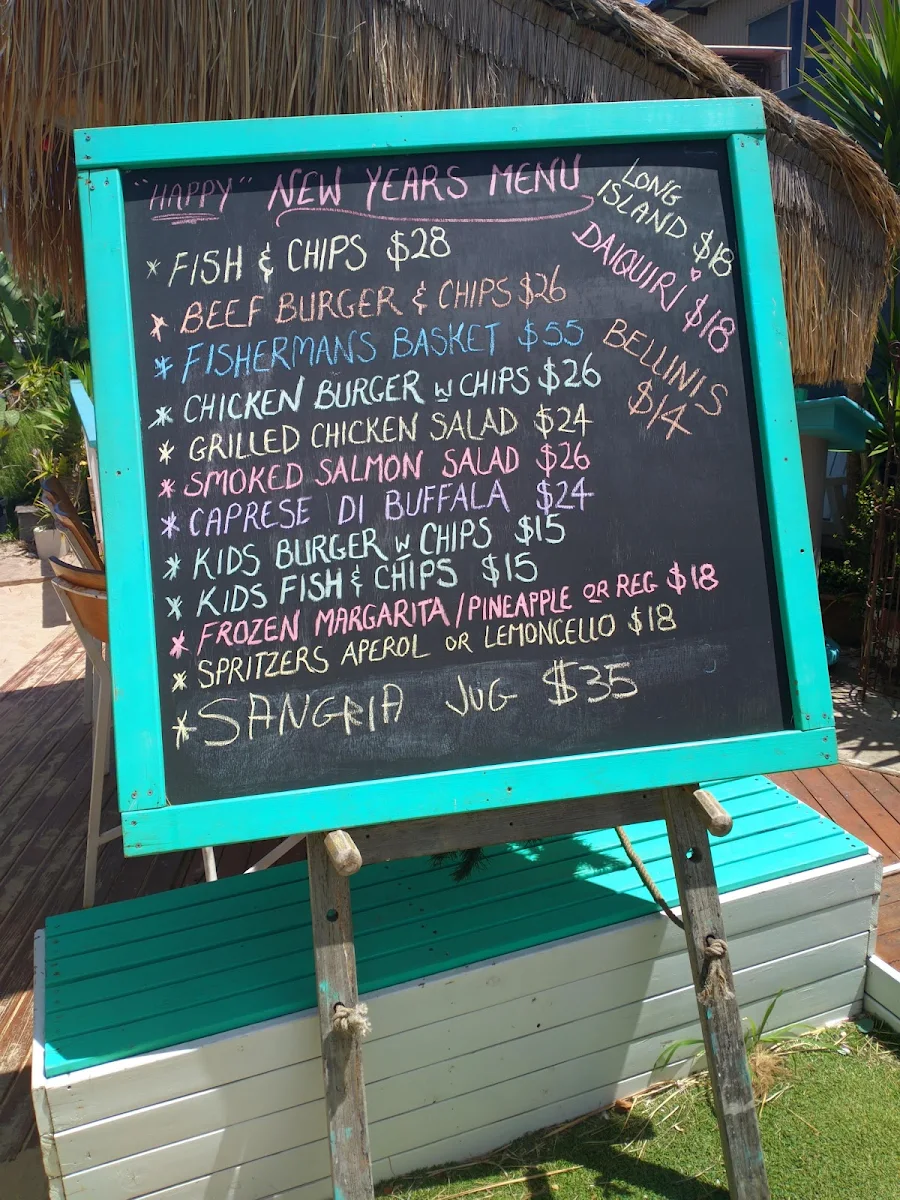 "HAPPY" NEW YEARS MENU
* FISH & CHIPS $28
* BEEF BURGER & CHIPS $26
* FISHERMANS BASKET $55
* CHICKEN BURGER w CHIPS $26
* GRILLED CHICKEN SALAD $24
* SMOKED SALMON SALAD $26
* CAPRESE DI BUFFALA $24
* KIDS BURGER w CHIPS $15
* KIDS FISH & CHIPS $15
* FROZEN MARGARITA/PINEAPPLE OR REG $18
* SPRITZERS APEROL OR LEMONCELLO $18
* SANGRIA JUG $35
LONG
ISLAND $18
DAIQUIRI $18
BELLINIS
$14